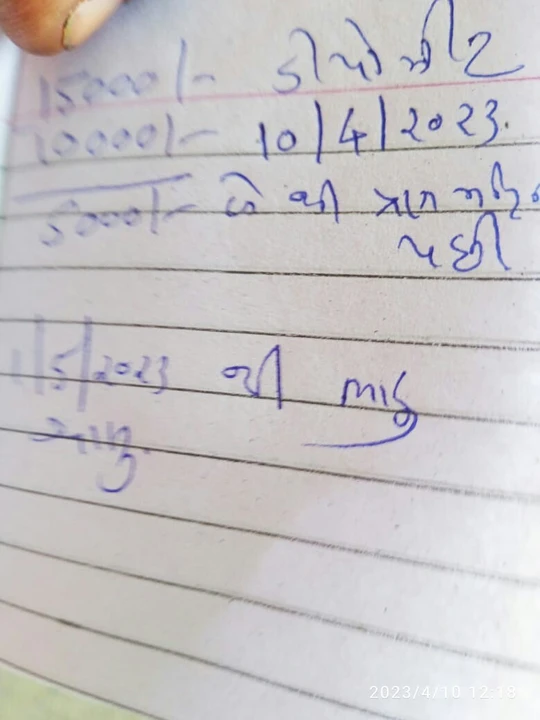 15000/- ડીપોઝીટ
10000/- 10/4/2023.
5000/-
પછી
1/5/2023 થી ભાડુ
ચાલુ.
2023/4/10 12:18